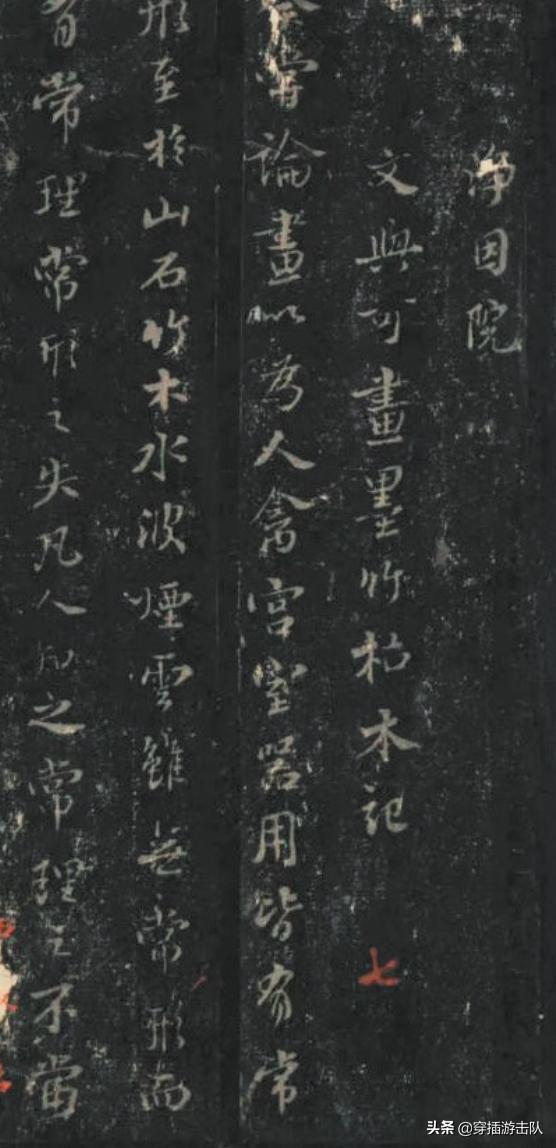 淨因院
文與可畫墨竹枯木記
七
余嘗論畫以為人禽宮室器用皆有常
形至於山石竹木水波煙雲雖無常形而
有常理常形之失凡人知之常理之不當
头条 @穿插游击队